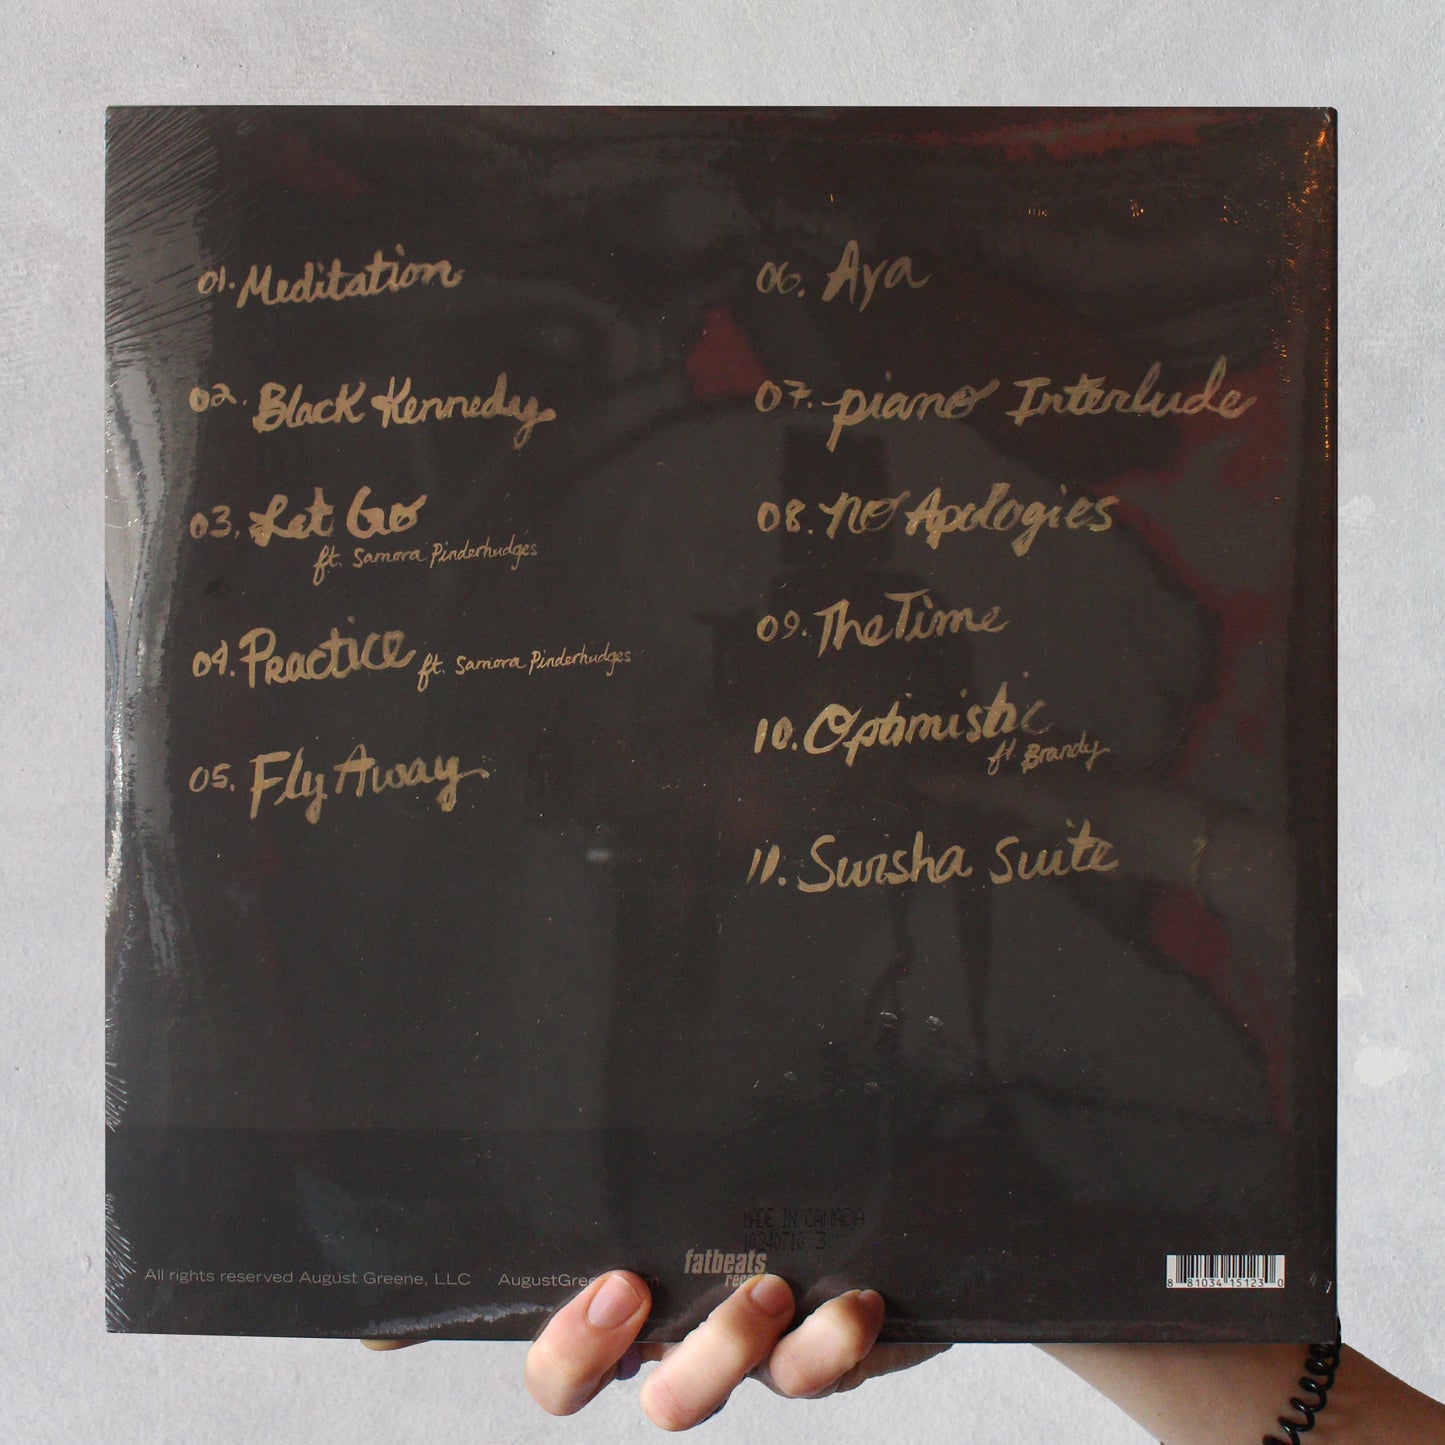 01. Meditation
02. Black Kennedy
03. Let Go
ft. Samora Pinderhudges
04. Practice ft. Samora Pinderhudges
05. Fly Away
06. Aya
07. piano Interlude
08. no Apologies
09. The Time
10. Optimistic
ft. Brandy
11. Swisha Suite
MADE IN CANADA
fatbeats
All rights reserved August Greene, LLC
8 81034 15123 0